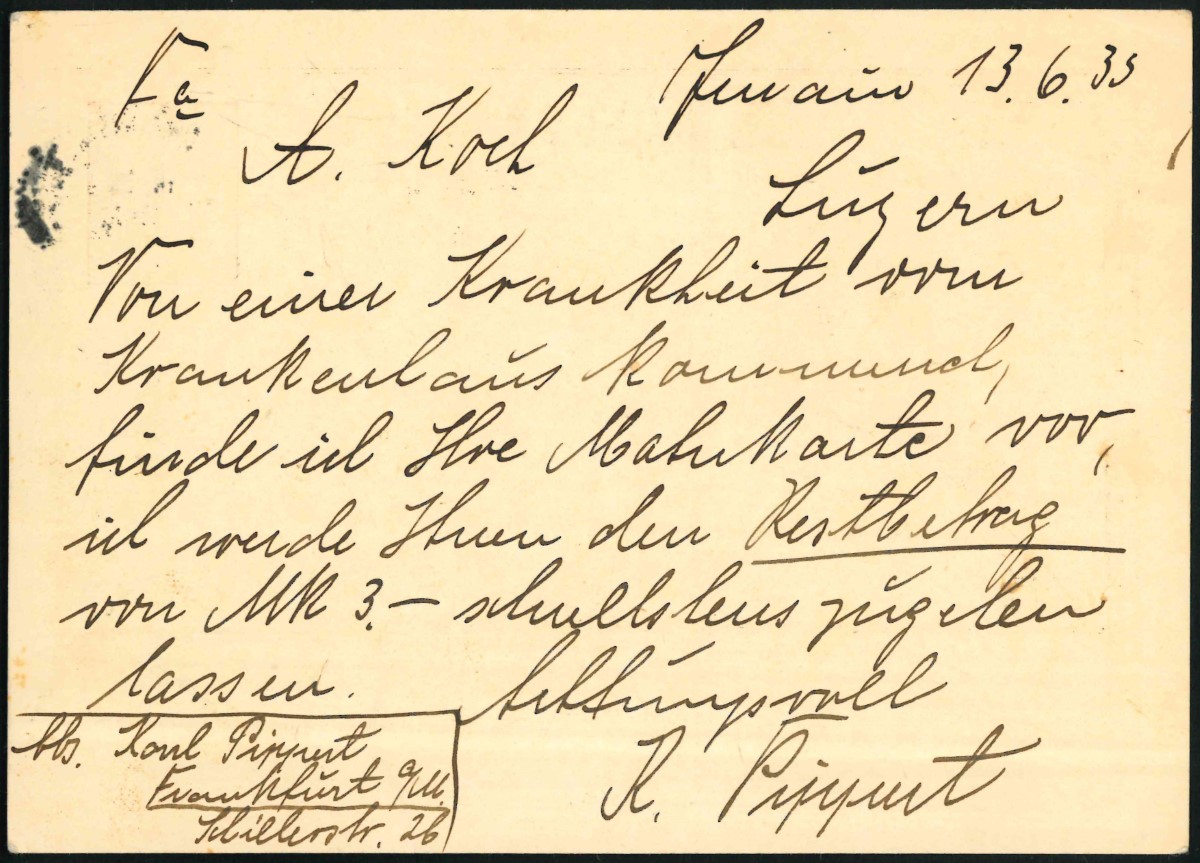 Fa 13.6.35
A. Koch
Luzern
Von einer Krankheit vom
Krankenhaus kommend,
finde ich Ihre Mahnkarte vor,
ich werde Ihnen den Restbetrag
von Mk 3.– schnellstens zugehen
lassen. Achtungsvoll
K. Pippert
Abs. Karl Pippert
Frankfurt a/M.
Schillerstr. 26